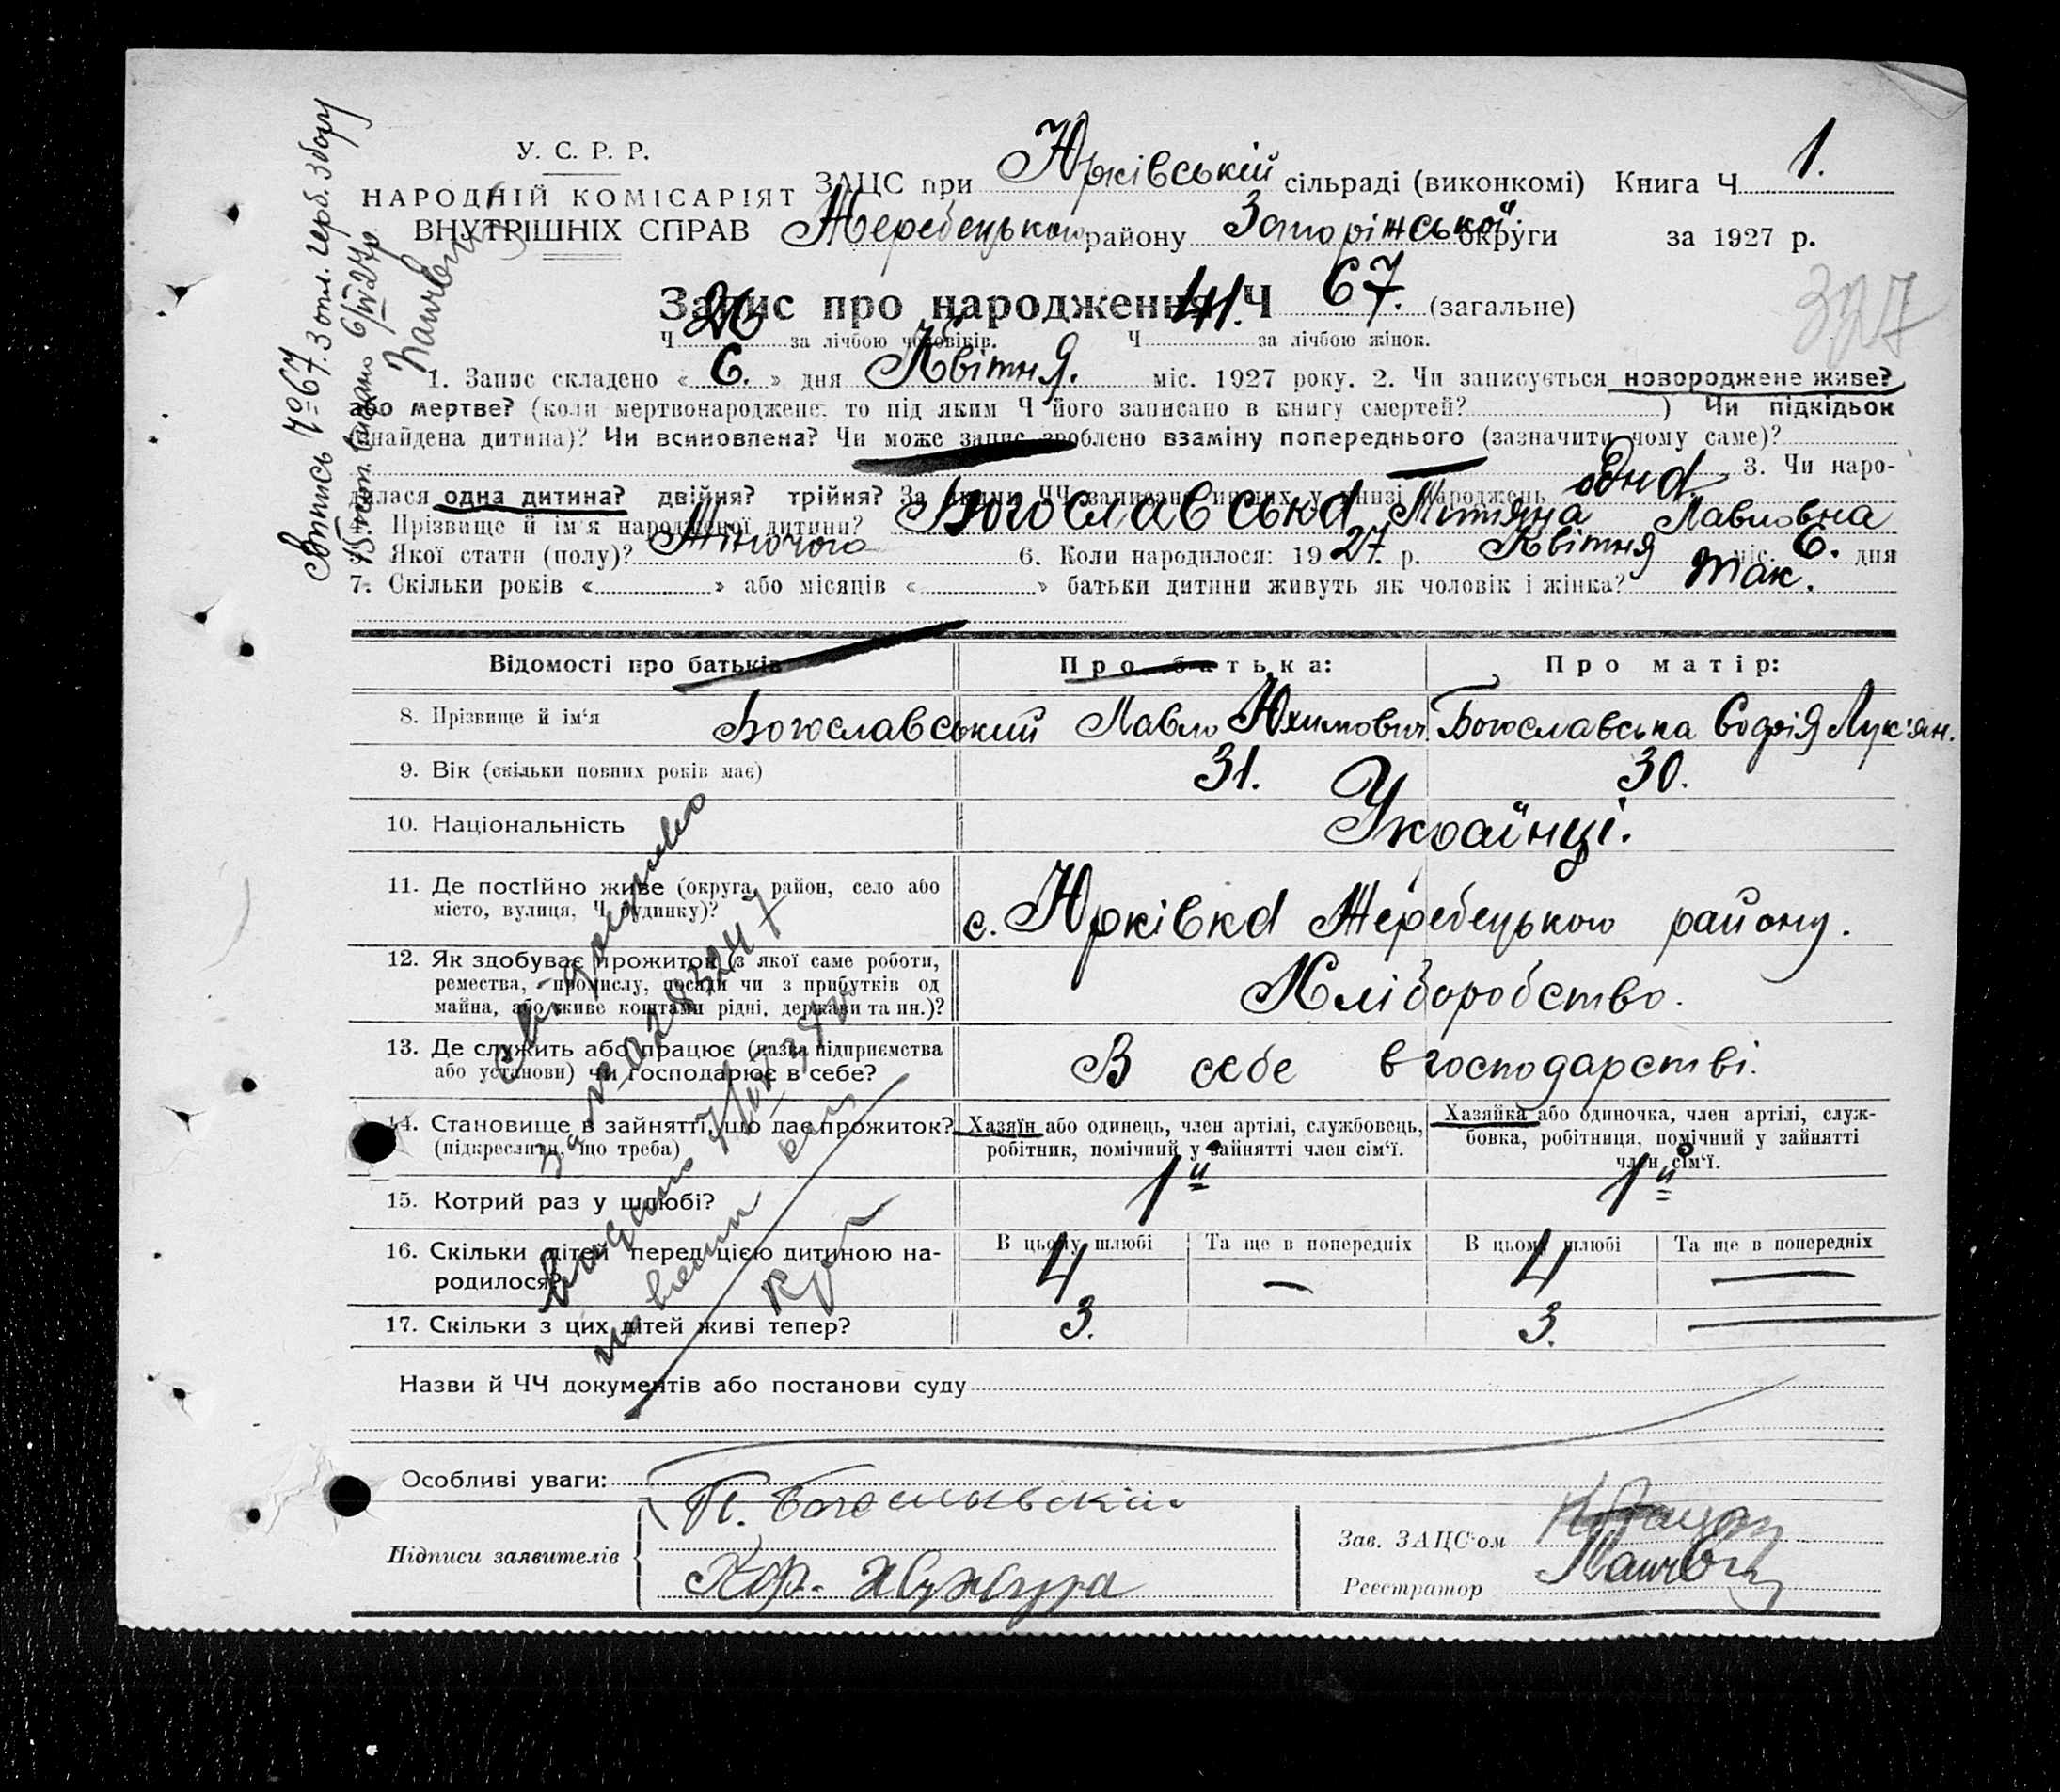 У. С. Р. Р.
НАРОДНІЙ КОМІСАРІЯТ
ВНУТРІШНІХ СПРАВ
ЗАЦС при Юрківській сільраді (виконкомі) Книга Ч 1.
Жеребецького району Запоріжської округи за 1927 р.
Запис про народження Ч 67. (загальне)
327
Ч 26 за лічбою чоловіків. Ч 41. за лічбою жінок.
1. Запис складено « 6. » дня Квітня. міс. 1927 року. 2. Чи записується новороджене живе?
або мертве? (коли мертвонароджене: то під яким Ч його записано в книгу смертей? ) Чи підкідьок
(знайдена дитина)? Чи всиновлена? Чи може запис зроблено взаміну попереднього (зазначити чому саме)?
3. Чи наро-
дилася одна дитина? двійня? трійня? За якими ЧЧ записані инших у книзі народжень одна.
4. Прізвище й ім'я народженої дитини? Богославська Титяна Павловна
5. Якої стати (полу)? Жіночого 6. Коли народилося: 1927. р. Квітня міс. 6. дня
7. Скільки років « » або місяців « » батьки дитини живуть як чоловік і жінка? Так.
Відомості про батьків Про батька: Про матір:
8. Прізвище й ім'я Богославський Павло Юхимович Богославська Софія Лук'ян.
9. Вік (скільки повних років має) 31. 30.
10. Національність Українці.
11. Де постійно живе (округа, район, село або
місто, вулиця, Ч будинку)? с. Юрківка Жеребецького району.
12. Як здобуває прожиток (з якої саме роботи,
ремества, промислу, посади чи з прибутків од
майна, або живе коштами рідні, держави та ин.)? Хліборобство.
13. Де служить або працює (назва підприємства
або установи) чи господарює в себе? В себе в господарстві.
14. Становище в зайнятті, що дає прожиток?
(підкреслити, що треба)
Хазяїн або одинець, член артілі, службовець,
робітник, помічний у зайнятті член сім'ї.
Хазяйка або одиночка, член артілі, служ-
бовка, робітниця, помічний у зайнятті
член сім'ї.
15. Котрий раз у шлюбі? 1й 1й
16. Скільки дітей перед цією дитиною на-
родилося?
В цьому шлюбі Та ще в попередніх В цьому шлюбі Та ще в попередніх
4 — 4 —
17. Скільки з цих дітей живі тепер? 3. 3. —
Назви й ЧЧ документів або постанови суду
Особливі уваги:
Підписи заявителів
П. Богославскій
Зав. ЗАЦС'ом
Реєстратор
Випись №67. З опл. герб. збору
15 коп. видано 6/IV 27р.